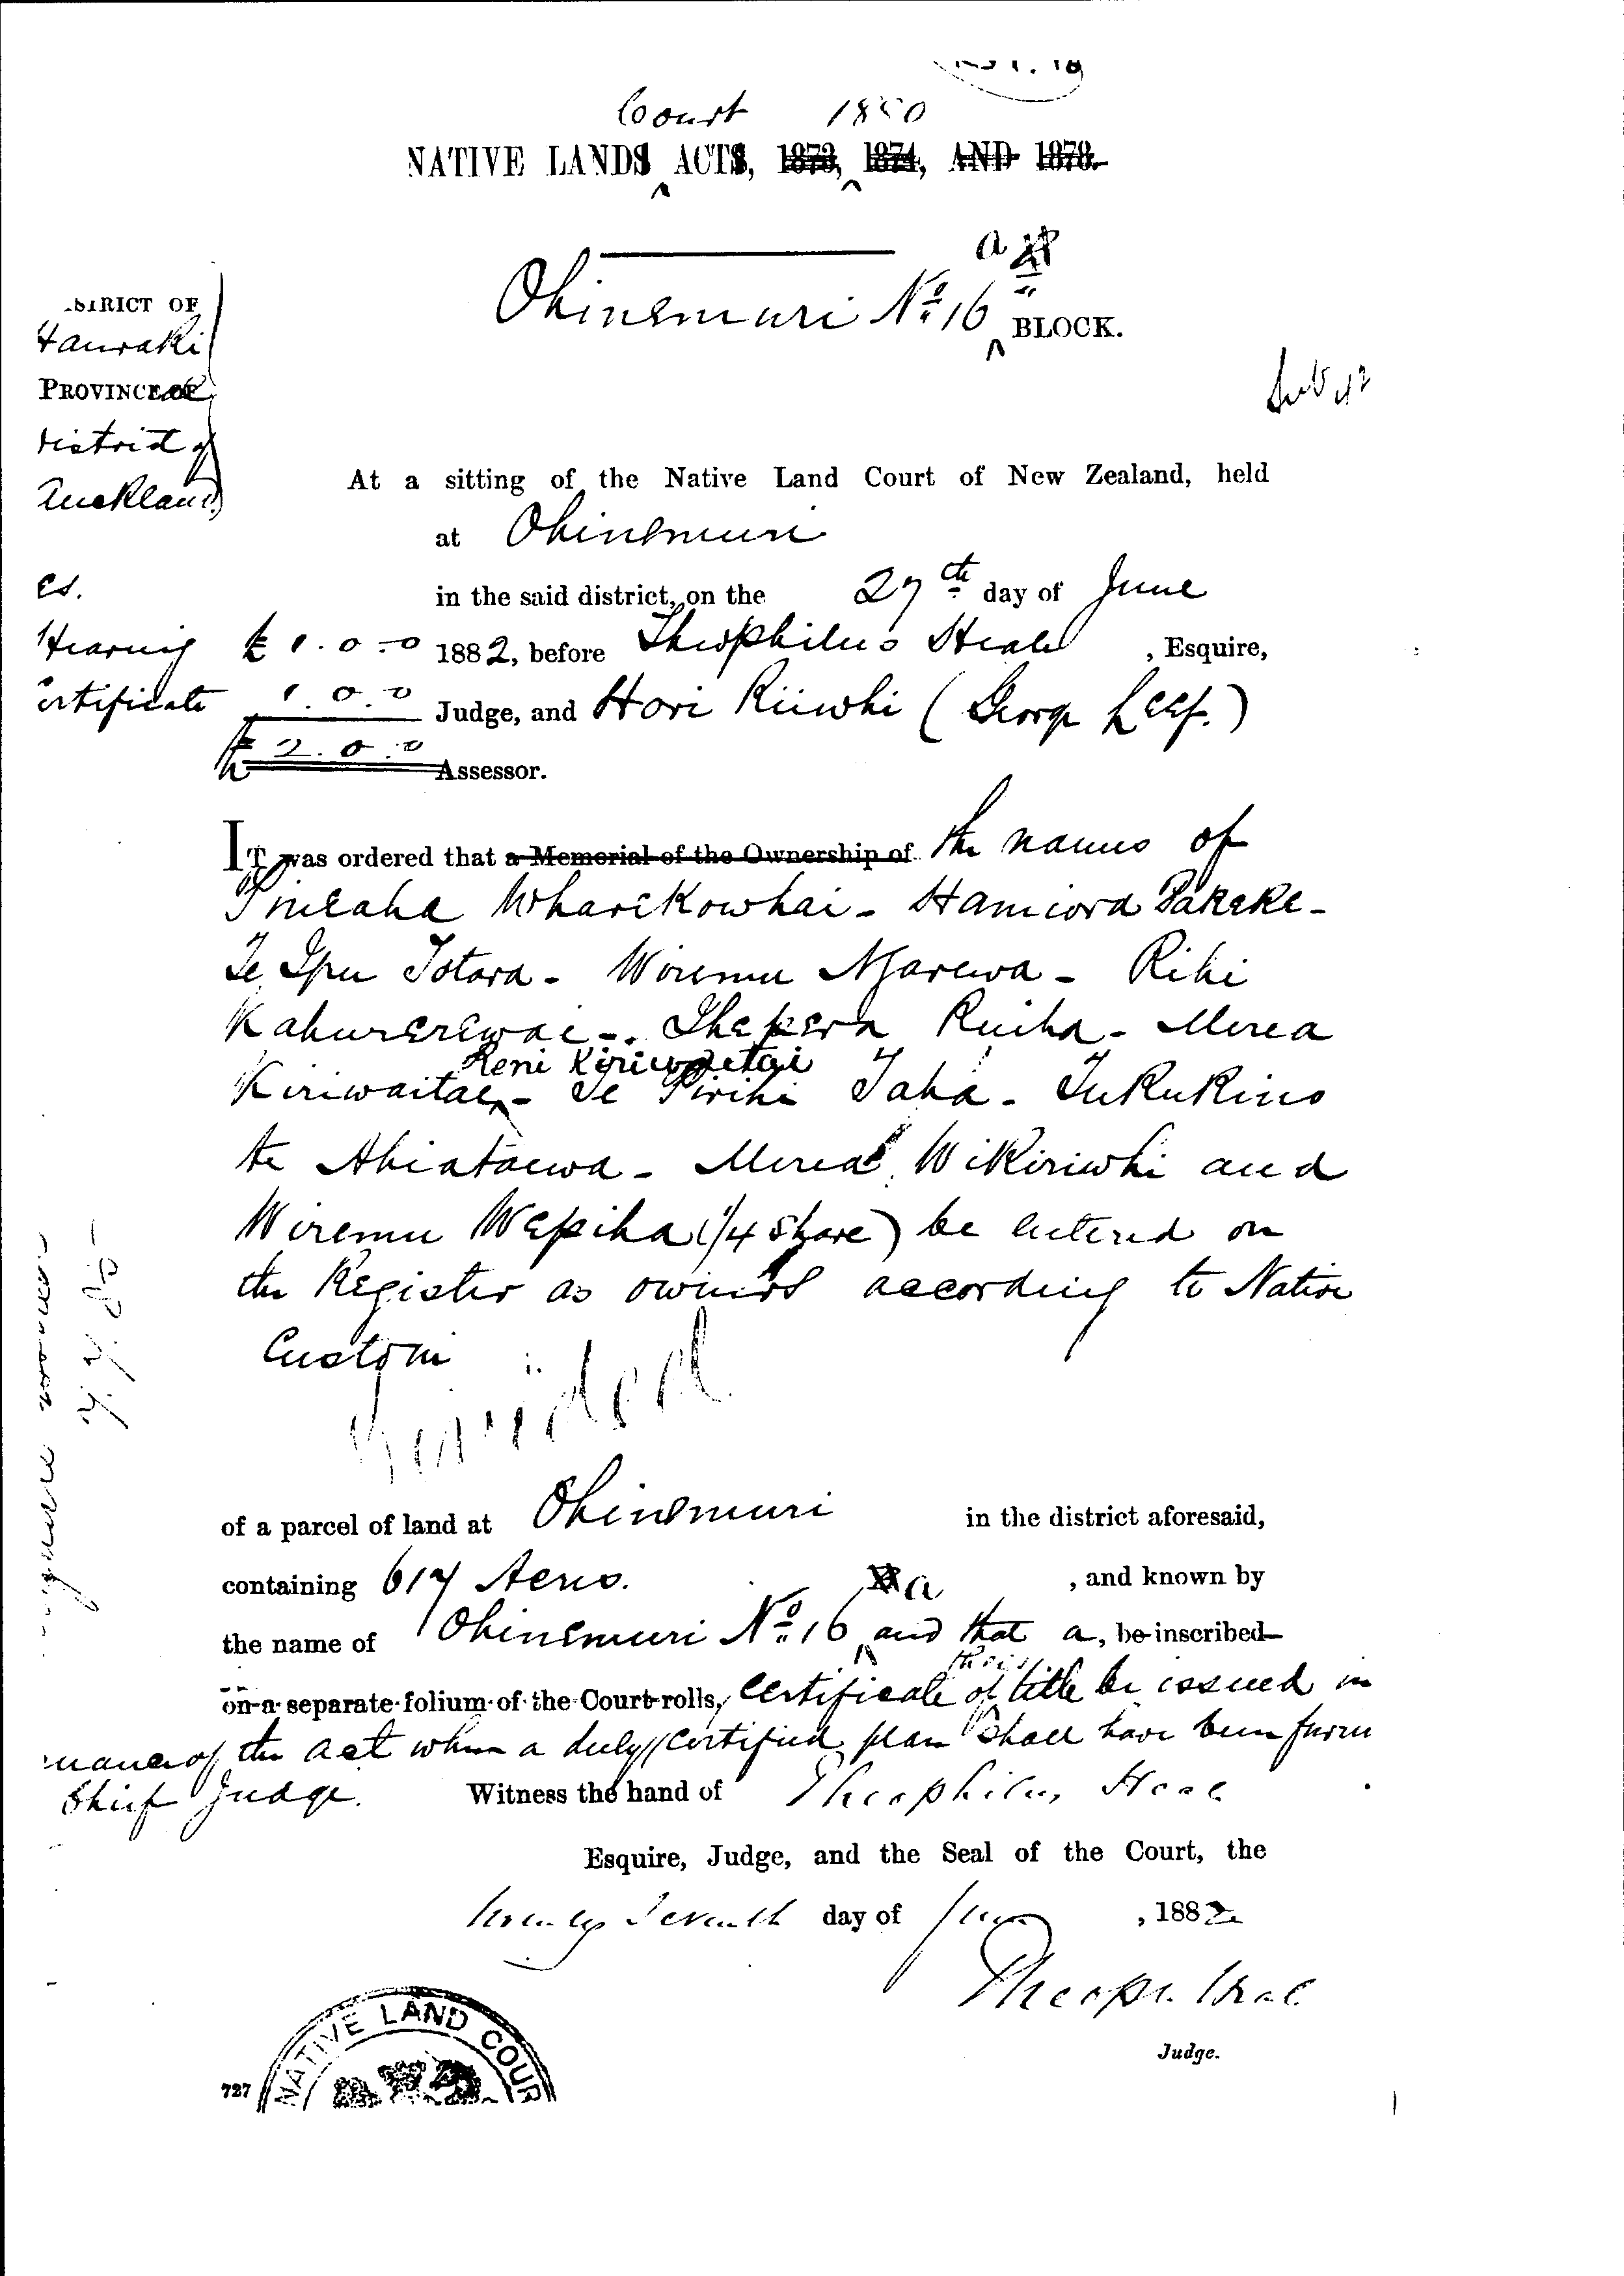 Court 1880
NATIVE LANDS ACTS, 1873, 1874, AND 1878.
a
Ohinemuri No. 16 BLOCK.
DISTRICT OF
Hauraki
PROVINCE OF
District of
Auckland
At a sitting of the Native Land Court of New Zealand, held
at Ohinemuri
in the said district, on the 27th day of June
1882, before Theophilus Heale, Esquire,
Judge, and Hori Riiwhi (George Leef.)
Assessor.
Hearing £ 1.0.0
ertificate 1.0.0
£ 2.0.0
IT was ordered that a Memorial of the Ownership of the names of
Pineaha Wharekowhai - Hamiora Pakeke -
Te Ipu Totara - Wiremu Ngarewa - Rihi
Kahurerewai - Ihapera Ruiha - Merea
Reni Kiriwaitai
Kiriwaitae - Te Pirihi Taha - Tukukino
te Ahiataewa - Merea Wikiriwhi and
Wiremu Wepiha (1/4 share) be entered on
the Register as owners according to Native
Custom
of a parcel of land at Ohinemuri in the district aforesaid,
containing 617 Acres. , and known by
a
the name of Ohinemuri No. 16 and that a, be inscribed
on a separate folium of the Court rolls, Certificate of title be issued in
their
of the Act when a duly certified plan shall have been furn
Chief Judge. Witness the hand of Theophilus Heale
Esquire, Judge, and the Seal of the Court, the
twenty seventh day of June, 1882
Theoph. Heale
Judge.
NATIVE LAND COUR
727